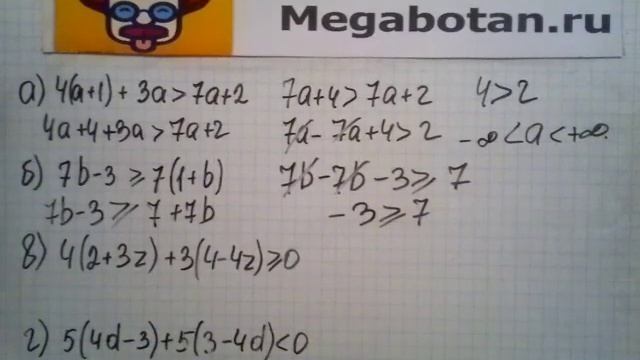 Megabotan.ru
а) 4(a+1) + 3a > 7a+2 7a+4 > 7a+2 4>2
4a+4+3a > 7a+2 7a - 7a+4 > 2 -∞ < a < +∞.
б) 7b-3 ≥ 7(1+b) 7b-7b -3 ≥ 7
7b-3 ≥ 7+7b -3 ≥ 7
в) 4(2+3z)+3(4-4z) ≥ 0
г) 5(4d-3)+5(3-4d)<0